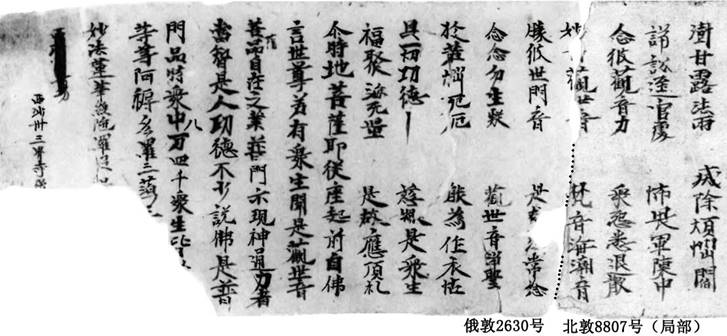 澍甘露法雨 滅除煩惱閻
諍訟逕官處 怖畏軍陳中
念彼觀音力 衆怨悉退散
妙 觀世音 梵音海潮音
勝彼世間音 是 常念
念念勿生疑 觀世音淨聖
於苦惱死厄 能為作依怙
具一切功德 慈眼是衆生
福聚海无量 是故應頂礼
尒時地菩薩即從座起前白佛
言世尊若有衆生聞是觀世音
菩品自在之業普門示現神通力者
當智是人功德不少說佛是普
門品時衆中八万四千衆生皆
等等阿耨多羅三藐
妙法蓮華經陀羅尼
三界寺
俄敦2630号 北敦8807号（局部）